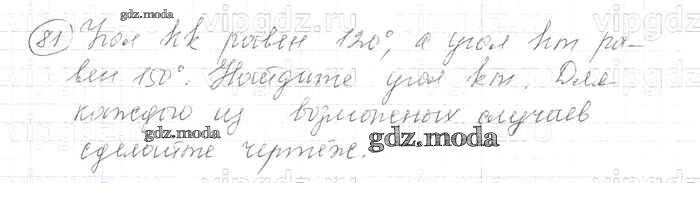 gdz.moda
81 Угол hk равен 120°, а угол hm ра-
вен 150°. Найдите угол km. Для
каждого из возможных случаев
gdz.moda gdz.moda
сделайте чертёж. gdz.moda